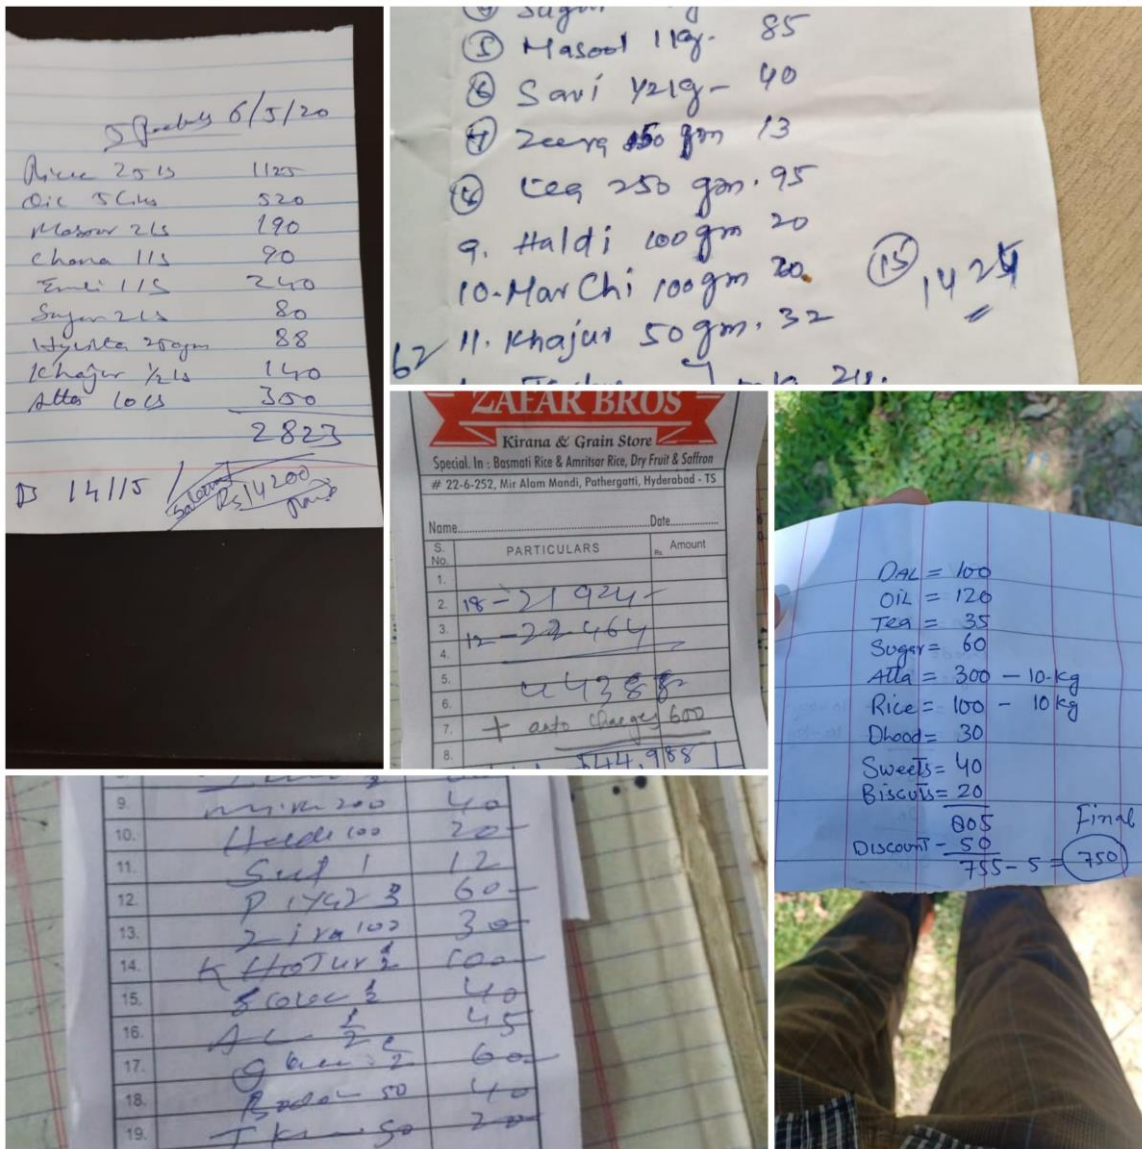 6/5/20
Rice 25 ls 1125
Oil 5 Lits 520
Masoor 2ls 190
Chana 1ls 90
Emli 1ls 240
Sugar 2ls 80
250gm 88
Khajur 1/2 ls 140
Atta 10 ls 350
2823
14115
Rs 14200
Sugar
5 Masool 1kg. 85
6 Savi 1/2kg - 40
7 Zeera 50 gm 13
8 tea 250 gm. 95
9. Haldi 100gm 20
10. MarChi 100gm 20.
11. Khajur 50gm. 32
62
15 1425
ZAFAR BROS
Kirana & Grain Store
Special. In : Basmati Rice & Amritsar Rice, Dry Fruit & Saffron
# 22-6-252, Mir Alam Mandi, Pathergatti, Hyderabad - TS
Name Date
S. No. PARTICULARS Rs. Amount
1.
2. 18 - 21924 -
3. 12 - 22464
4.
5. 44388
6.
7. + auto charges 600
8. 44,988
DAL = 100
OIL = 120
Tea = 35
Sugar = 60
Atta = 300 - 10-kg
Rice = 100 - 10 kg
Dhood = 30
Sweets = 40
Biscuts = 20
805
Discount - 50
755 - 5 = 750
Final
9. 200 40
10. 100 20
11. 1 12
12. Piyaz 3 60
13. Zira 100 30
14. 1/2 100
15. 1/2 40
16. 1/2 45
17. 60
18. Badam 50 40
19. 50 20